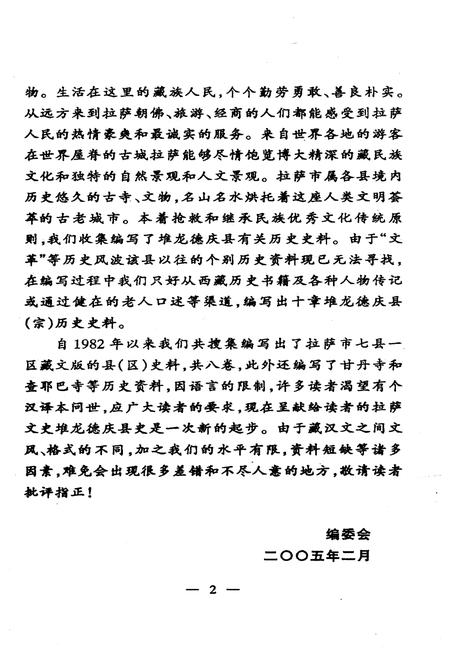 物。生活在这里的藏族人民，个个勤劳勇敢、善良朴实。
从远方来到拉萨朝佛、旅游、经商的人们都能感受到拉萨
人民的热情豪爽和最诚实的服务。来自世界各地的游客
在世界屋脊的古城拉萨能够尽情饱览博大精深的藏民族
文化和独特的自然景观和人文景观。拉萨市属各县境内
历史悠久的古寺、文物，名山名水烘托着这座人类文明荟
萃的古老城市。本着抢救和继承民族优秀文化传统原
则，我们收集编写了堆龙德庆县有关历史史料。由于“文
革”等历史风波该县以往的个别历史资料现已无法寻找，
在编写过程中我们只好从西藏历史书籍及各种人物传记
或通过健在的老人口述等渠道，编写出十章堆龙德庆县
(宗)历史史料。
自1982年以来我们共搜集编写出了拉萨市七县一
区藏文版的县(区)史料，共八卷，此外还编写了甘丹寺和
查耶巴寺等历史资料，因语言的限制，许多读者渴望有个
汉译本问世，应广大读者的要求，现在呈献给读者的拉萨
文史堆龙德庆县史是一次新的起步。由于藏汉文之间文
风、格式的不同，加之我们的水平有限，资料短缺等诸多
因素，难免会出现很多差错和不尽人意的地方，敬请读者
批评指正！
编委会
二〇〇五年二月
— 2 —